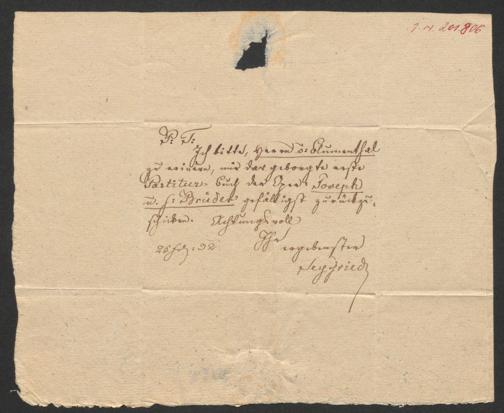 I. N. 201.806
P. T.
Ich bitte, Herrn v: Blumenthal
zu erinern, mir das geborgte erste
Partitur-Buch der Oper: Joseph
u. s: Brüder gefälligst zurückzu-
schicken. Achtungsvoll
Ihr
ergebenster
Seyfried